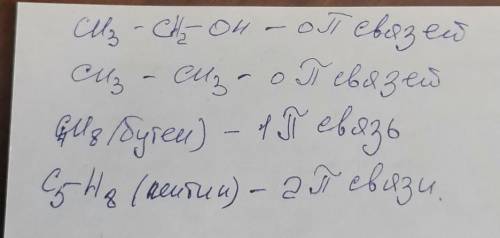 CH₃ - CH₂ - OH - 0 П связей
CH₃ - CH₃ - 0 П связей
C₄H₈ (бутен) - 1 П связь
C₅H₈ (пентин) - 2 П связи.